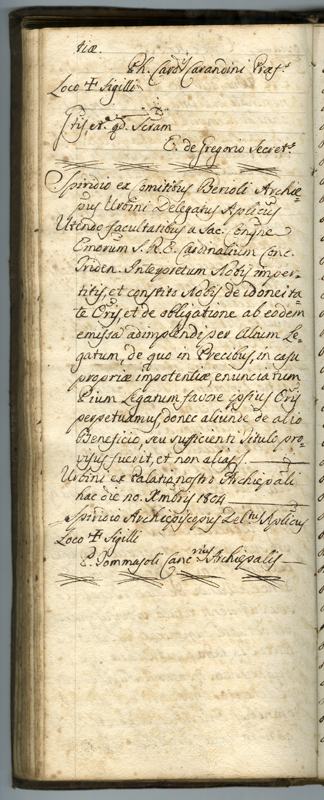 tiæ.
Ph. Card.s Carandini Præf.s
Loco + Sigilli
E. de Gregorio Secret.s
Spiridio ex Comitibus Berioli Archiæ-
pus Urbini Delegatus Aplicus
Utendo facultatibus a Sac. Congne
Emorum S. R. E. Cardinalium Conc.
Triden. Interpretum Nobis imper-
titis, et constito Nobis de idoneita-
te Oris, et de obligatione ab eodem
emissa adimplendi per alium Le-
gatum, de quo in Precibus, in casu
propriæ impotentiæ, enunciatum
Pium Legatum favore ipsius Oris
perpetuamus, donec aliunde de alio
Beneficio, seu sufficienti Titulo pro-
visus fuerit, et non alias.
Urbini ex Palatio nostro Archiepali
hac die no. Xmbris 1804
Spiridio Archiepiscopus Del.tus Aplicus
Loco + Sigilli
P. Tommasoli Canc.rius Archiepalis